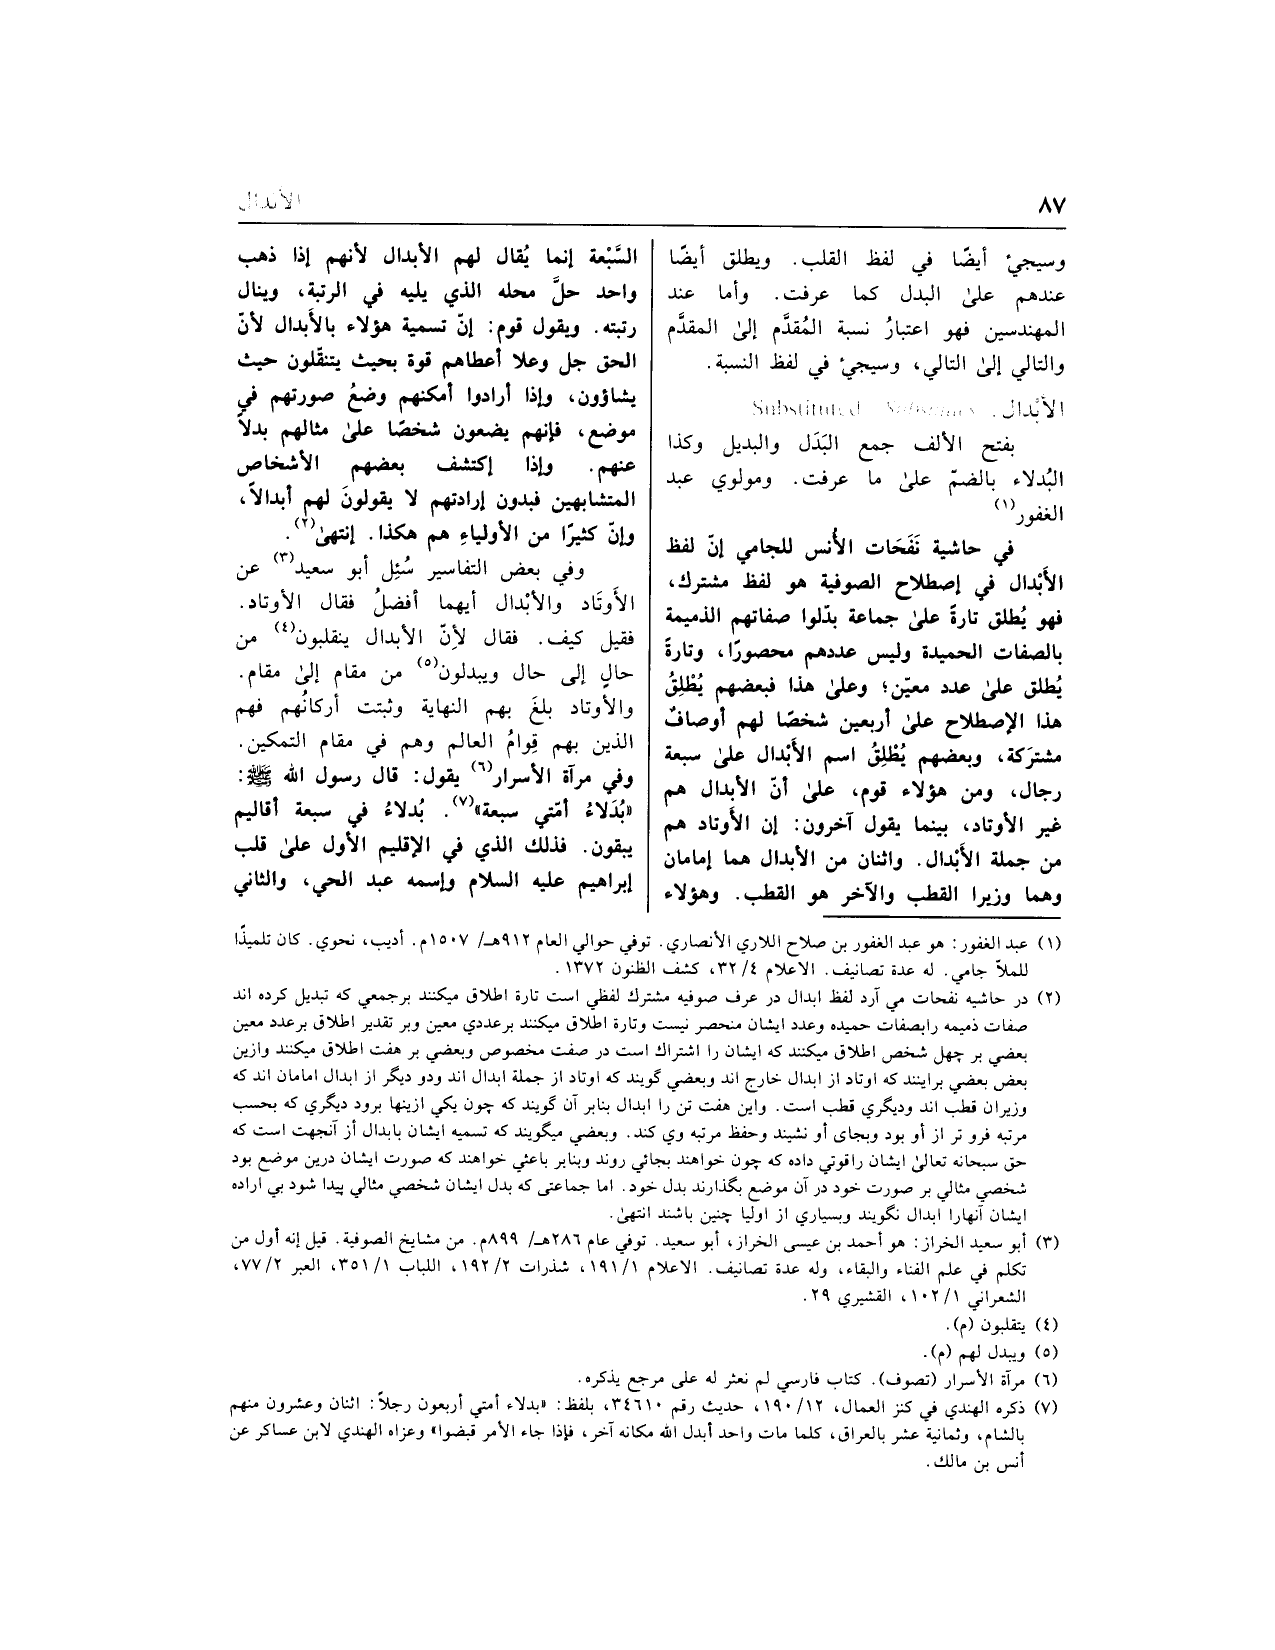 ٨٧
الأبدال
وسيجيءُ أيضًا في لفظ القلب. ويطلق أيضًا
عندهم علىٰ البدل كما عرفت. وأما عند
المهندسين فهو اعتبارُ نسبة المُقدَّم إلىٰ المقدَّم
والتالي إلىٰ التالي، وسيجيءُ في لفظ النسبة.
الأبْدال. Substituted
بفتح الألف جمع البَدَل والبديل وكذا
البُدلاء بالضمّ علىٰ ما عرفت. ومولوي عبد
الغفور(١)
في حاشية نَفَحَات الأُنس للجامي إنّ لفظ
الأَبْدال في إصطلاح الصوفية هو لفظ مشترك،
فهو يُطلق تارةً علىٰ جماعة بدّلوا صفاتهم الذميمة
بالصفات الحميدة وليس عددهم محصورًا، وتارةً
يُطلق علىٰ عدد معيّن؛ وعلىٰ هذا فبعضهم يُطْلِقُ
هذا الإصطلاح علىٰ أربعين شخصًا لهم أوصافٌ
مشتَركة، وبعضهم يُطْلِقُ اسم الأَبْدال علىٰ سبعة
رجال، ومن هؤلاء قوم، علىٰ أنّ الأبدال هم
غير الأوتاد، بينما يقول آخرون: إن الأوتاد هم
من جملة الأَبْدال. واثنان من الأبدال هما إمامان
وهما وزيرا القطب والآخر هو القطب. وهؤلاء
السَّبْعة إنما يُقال لهم الأبدال لأنهم إذا ذهب
واحد حلَّ محله الذي يليه في الرتبة، وينال
رتبته. ويقول قوم: إنّ تسمية هؤلاء بالأَبدال لأنّ
الحق جل وعلا أعطاهم قوة بحيث يتنقّلون حيث
يشاؤون، وإذا أرادوا أمكنهم وضعُ صورتهم في
موضع، فإنهم يضعون شخصًا علىٰ مثالهم بدلاً
عنهم. وإذا إكتشف بعضهم الأشخاص
المتشابهين فبدون إرادتهم لا يقولونَ لهم أبدالاً،
وإنّ كثيرًا من الأولياءِ هم هكذا. إنتهىٰ(٢).
وفي بعض التفاسير سُئِل أبو سعيد(٣) عن
الأَوتَاد والأبْدال أيهما أفضلُ فقال الأوتاد.
فقيل كيف. فقال لأنّ الأبدال ينقلبون(٤) من
حالٍ إلى حال ويبدلون(٥) من مقام إلىٰ مقام.
والأوتاد بلغَ بهم النهاية وثبتت أركانُهم فهم
الذين بهم قِوامُ العالم وهم في مقام التمكين.
وفي مرآة الأسرار(٦) يقول: قال رسول الله ﷺ:
«بُدَلاءُ أمّتي سبعة»(٧). بُدلاءُ في سبعة أقاليم
يبقون. فذلك الذي في الإقليم الأول علىٰ قلب
إبراهيم عليه السلام وإسمه عبد الحي، والثاني
(١) عبد الغفور: هو عبد الغفور بن صلاح اللاري الأنصاري. توفي حوالي العام ٩١٢هـ/ ١٥٠٧م. أديب، نحوي. كان تلميذًا
للملاّ جامي. له عدة تصانيف. الاعلام ٤/ ٣٢، كشف الظنون ١٣٧٢.
(٢) در حاشيه نفحات مي آرد لفظ ابدال در عرف صوفيه مشترك لفظي است تارة اطلاق ميكنند برجمعي كه تبديل كرده اند
صفات ذميمه رابصفات حميده وعدد ايشان منحصر نيست وتارة اطلاق ميكنند برعددي معين وبر تقدير اطلاق برعدد معين
بعضي بر چهل شخص اطلاق ميكنند كه ايشان را اشتراك است در صفت مخصوص وبعضي بر هفت اطلاق ميكنند وازين
بعض بعضي برايند كه اوتاد از ابدال خارج اند وبعضي گويند كه اوتاد از جملة ابدال اند ودو ديگر از ابدال امامان اند كه
وزيران قطب اند وديگري قطب است. واين هفت تن را ابدال بنابر آن گويند كه چون يكي ازينها برود ديگري كه بحسب
مرتبه فرو تر از أو بود وبجاى أو نشيند وحفظ مرتبه وي كند. وبعضي ميگويند كه تسميه ايشان بابدال أز آنجهت است كه
حق سبحانه تعالىٰ ايشان راقوتي داده كه چون خواهند بجائي روند وبنابر باعثي خواهند كه صورت ايشان درين موضع بود
شخصي مثالي بر صورت خود در آن موضع بگذارند بدل خود. اما جماعتى كه بدل ايشان شخصي مثالي پيدا شود بي اراده
ايشان آنهارا ابدال نگويند وبسياري از اوليا چنين باشند انتهىٰ.
(٣) أبو سعيد الخراز: هو أحمد بن عيسى الخراز، أبو سعيد. توفي عام ٢٨٦هـ/ ٨٩٩م. من مشايخ الصوفية. قيل إنه أول من
تكلم في علم الفناء والبقاء، وله عدة تصانيف. الاعلام ١/ ١٩١، شذرات ٢/ ١٩٢، اللباب ١/ ٣٥١، العبر ٢/ ٧٧،
الشعراني ١/ ١٠٢، القشيري ٢٩.
(٤) يتقلبون (م).
(٥) ويبدل لهم (م).
(٦) مرآة الأسرار (تصوف). كتاب فارسي لم نعثر له على مرجع يذكره.
(٧) ذكره الهندي في كنز العمال، ١٢/ ١٩٠، حديث رقم ٣٤٦١٠، بلفظ: «بدلاء أمتي أربعون رجلاً: اثنان وعشرون منهم
بالشام، وثمانية عشر بالعراق، كلما مات واحد أبدل الله مكانه آخر، فإذا جاء الأمر قبضوا» وعزاه الهندي لابن عساكر عن
أنس بن مالك.